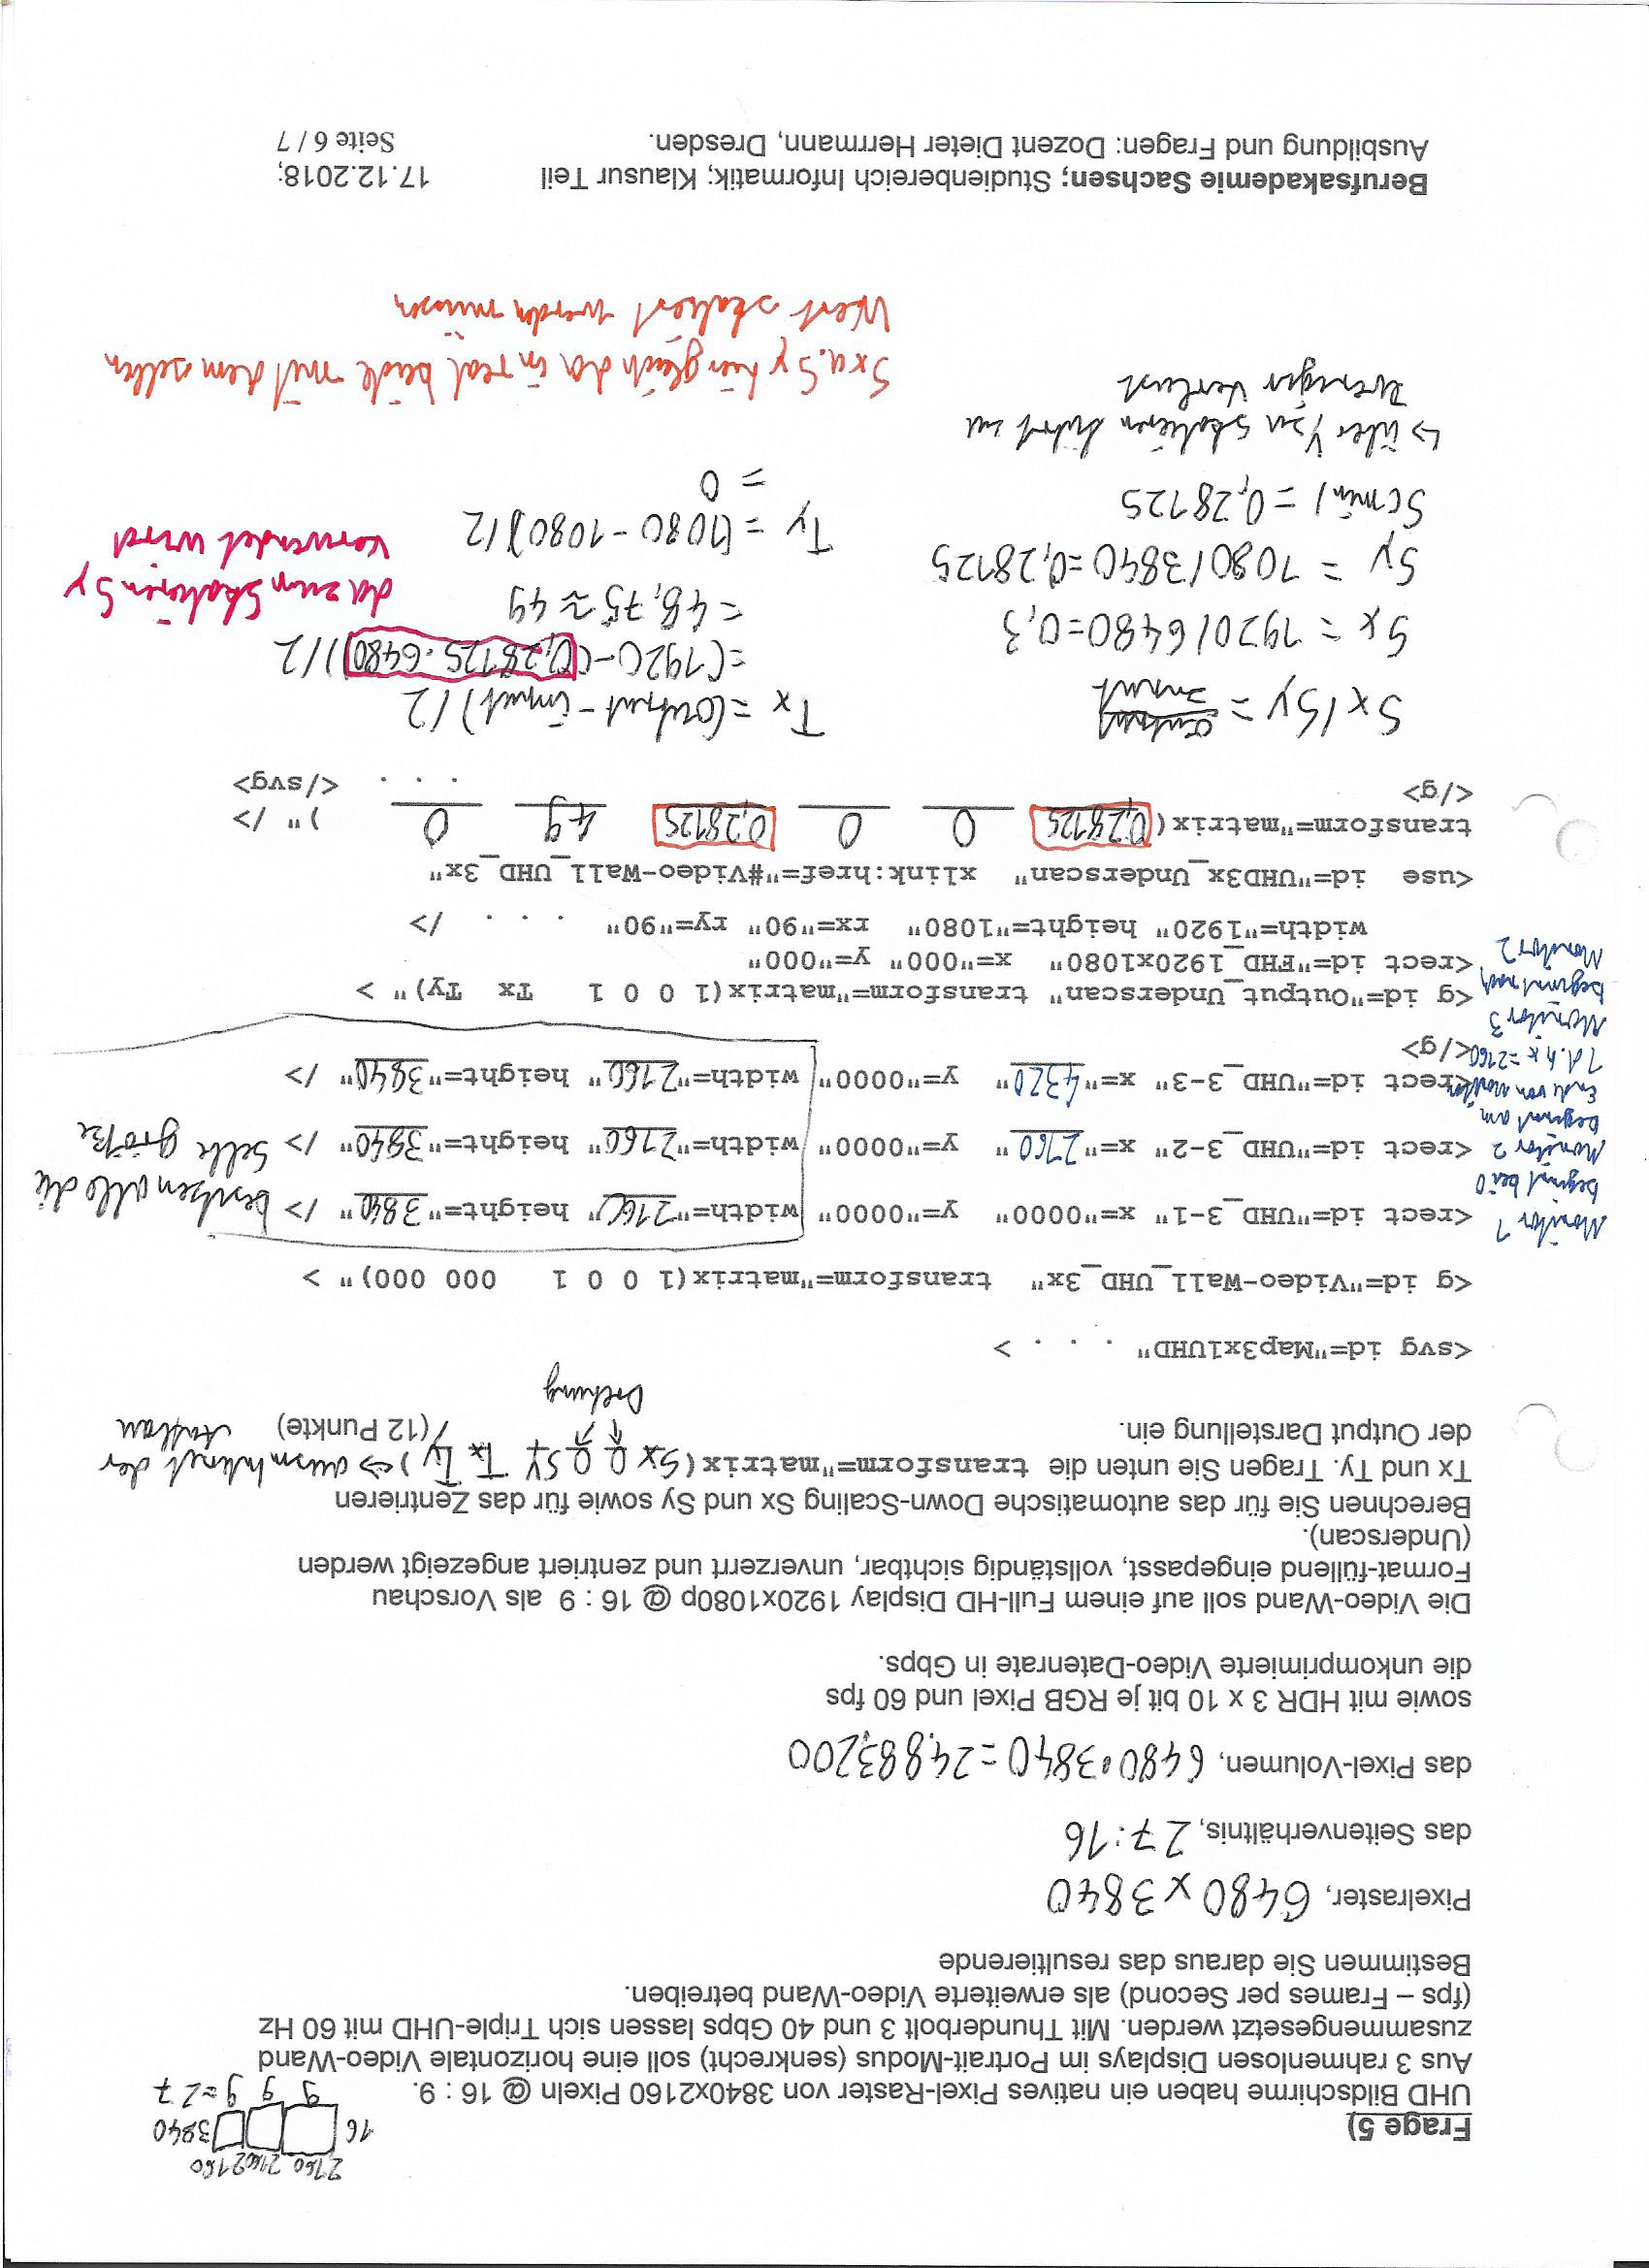 2160 2160 2160
Frage 5)
16 3840
9 9 9=27
UHD Bildschirme haben ein natives Pixel-Raster von 3840x2160 Pixeln @ 16 : 9.
Aus 3 rahmenlosen Displays im Portrait-Modus (senkrecht) soll eine horizontale Video-Wand
zusammengesetzt werden. Mit Thunderbolt 3 und 40 Gbps lassen sich Triple-UHD mit 60 Hz
(fps – Frames per Second) als erweiterte Video-Wand betreiben.
Bestimmen Sie daraus das resultierende
Pixelraster, 6480 x 3840
das Seitenverhältnis, 27:16
das Pixel-Volumen, 6480•3840=24.883.200
sowie mit HDR 3 x 10 bit je RGB Pixel und 60 fps
die unkomprimierte Video-Datenrate in Gbps.
Die Video-Wand soll auf einem Full-HD Display 1920x1080p @ 16 : 9 als Vorschau
Format-füllend eingepasst, vollständig sichtbar, unverzerrt und zentriert angezeigt werden
(Underscan).
Berechnen Sie für das automatische Down-Scaling Sx und Sy sowie für das Zentrieren
Tx und Ty. Tragen Sie unten die transform="matrix(Sx 0 0 Sy Tx Ty) <=> der
der Output Darstellung ein. (12 Punkte) Aufbau
Drehung
<svg id="Map3x1UHD" . . . >
<g id="Video-Wall_UHD_3x" transform="matrix(1 0 0 1 000 000)" >
Monitor 1
<rect id="UHD_3-1" x="0000" y="0000" width="2160" height="3840" /> besitzen alle die
beginnt bei 0
Monitor 2 <rect id="UHD_3-2" x="2160" y="0000" width="2160" height="3840" /> Selbe größe
beginnt am
Ende von Monitor
<rect id="UHD_3-3" x="4320" y="0000" width="2160" height="3840" />
1 d.h x=2160
</g>
Monitor 3
beginnt nach
<g id="Output_Underscan" transform="matrix(1 0 0 1 Tx Ty)" >
Monitor 2
<rect id="FHD_1920x1080" x="000" y="000"
width="1920" height="1080" rx="90" ry="90" . . . />
<use id="UHD3x_Underscan" xlink:href="#Video-Wall_UHD_3x"
transform="matrix(0,28125 0 0 0,28125 49 0 )" />
</g> . . . </svg>
Sx/Sy = output
Input
Sx = 1920/6480=0,3
Sy = 1080/3840=0,28125
S(min) = 0,28125
↳ über Y zu skalieren führt zu
weniger Verlust
Tx = (output - input) / 2
=(1920-(0,28125·6480))/2
= 48,75 ≈ 49
da zum Skalieren Sy
verwendet wird
Ty = (1080 - 1080)/2
= 0
Sx u. Sy hier gleich da in real beide mit dem selben
Wert skaliert werden müssen
Berufsakademie Sachsen; Studienbereich Informatik; Klausur Teil 17.12.2018;
Ausbildung und Fragen: Dozent Dieter Herrmann, Dresden. Seite 6 / 7